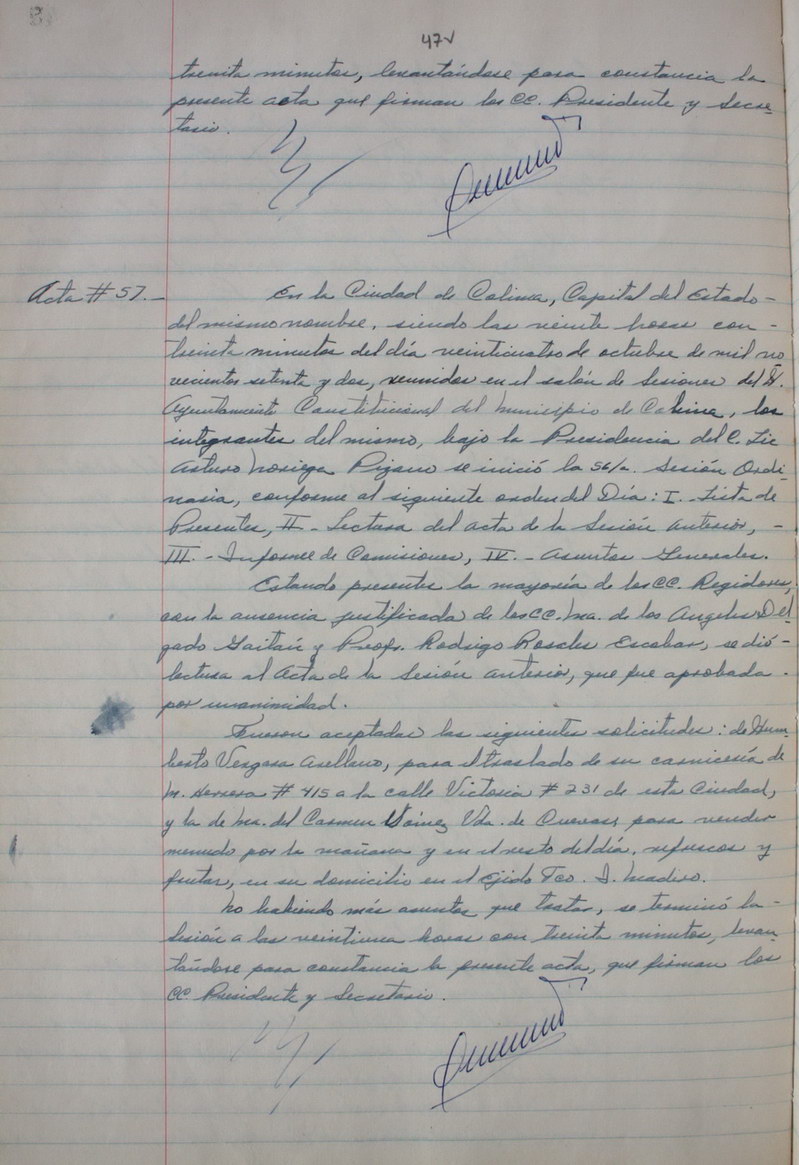 47v
treinta minutos, levantándose para constancia la
presente acta que firman los CC. Presidente y Secre-
tario.
Acta # 57.-
En la Ciudad de Colima, Capital del Estado -
del mismo nombre, siendo las veinte horas con -
treinta minutos del día veinticuatro de octubre de mil no
vecientos setenta y dos, reunidos en el salón de Sesiones del H.
Ayuntamiento Constitucional del Municipio de Colima, los
integrantes del mismo, bajo la Presidencia del C. Lic
Arturo Noriega Pizano se inició la 56/a. Sesión Ordi-
naria, conforme al siguiente orden del Día: I.- Lista de
Presentes, II.- Lectura del acta de la Sesión anterior, -
III.- Informe de Comisiones, IV.- Asuntos Generales.
Estando presentes la mayoría de los CC. Regidores,
con la ausencia justificada de los CC. Ma. de los Angeles Del
gado Gaitán y Profr. Rodrigo Rosales Escobar, se dió -
lectura al Acta de la Sesión anterior, que fue aprobada
por unanimidad.
Fueron aceptadas las siguientes solicitudes: de Hum-
berto Vergara Arellano, para el traslado de su carnicería de
M. Herrera # 415 a la calle Victoria # 231 de esta Ciudad,
y la de Ma. del Carmen Vda. de para vender
menudo por la mañana y en el resto del día, refrescos y
frutas, en su domicilio en el Ejido Fco. I. Madero.
No habiendo más asuntos que tratar, se terminó la -
Sesión a las veintiuna horas con treinta minutos, levan-
tándose para constancia la presente acta, que firman los
CC Presidente y Secretario.